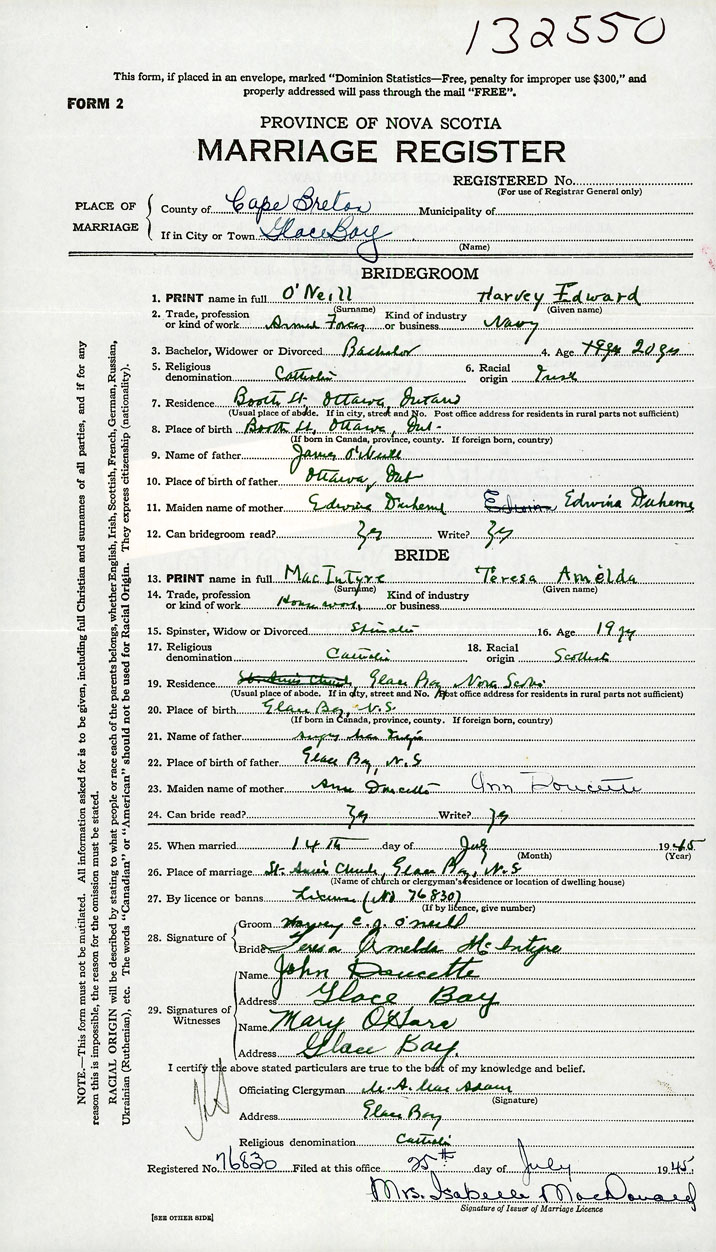 132550
This form, if placed in an envelope, marked "Dominion Statistics—Free, penalty for improper use $300," and
properly addressed will pass through the mail "FREE".
FORM 2
PROVINCE OF NOVA SCOTIA
MARRIAGE REGISTER
REGISTERED No.
(For use of Registrar General only)
PLACE OF MARRIAGE
County of Cape Breton Municipality of
If in City or Town Glace Bay
(Name)
BRIDEGROOM
1. PRINT name in full O'Neill Harvey Edward
(Surname) (Given name)
2. Trade, profession or kind of work Armed Forces Kind of industry or business Navy
3. Bachelor, Widower or Divorced Bachelor 4. Age 19 yrs 20 yrs
5. Religious denomination Catholic 6. Racial origin Irish
7. Residence Booth St, Ottawa, Ontario
(Usual place of abode. If in city, street and No. Post office address for residents in rural parts not sufficient)
8. Place of birth Booth St, Ottawa, Ont.
(If born in Canada, province, county. If foreign born, country)
9. Name of father James O'Neill
10. Place of birth of father Ottawa, Ont
11. Maiden name of mother Edwina Duheme Edwina Edwina Duheme
12. Can bridegroom read? Yes Write? Yes
BRIDE
13. PRINT name in full MacIntyre Teresa Amelda
(Surname) (Given name)
14. Trade, profession or kind of work House work Kind of industry or business
15. Spinster, Widow or Divorced Spinster 16. Age 19 yr
17. Religious denomination Catholic 18. Racial origin Scottish
19. Residence St. Ann's Church, Glace Bay Nova Scotia
(Usual place of abode. If in city, street and No. Post office address for residents in rural parts not sufficient)
20. Place of birth Glace Bay, N.S
(If born in Canada, province, county. If foreign born, country)
21. Name of father Angus MacIntyre
22. Place of birth of father Glace Bay, N.S
23. Maiden name of mother Ann Doucette Ann Doucette
24. Can bride read? Yes Write? Yes
25. When married 14th day of July 1945
(Month) (Year)
26. Place of marriage St. Ann's Church, Glace Bay, N.S
(Name of church or clergyman's residence or location of dwelling house)
27. By licence or banns License (No 76830)
(If by licence, give number)
28. Signature of
Groom Harvey E.J. O'Neill
Bride Teresa Amelda McIntyre
29. Signatures of Witnesses
Name John Doucette
Address Glace Bay
Name Mary O'Hara
Address Glace Bay.
I certify the above stated particulars are true to the best of my knowledge and belief.
Officiating Clergyman M. A. MacAdam
(Signature)
Address Glace Bay
Religious denomination Catholic
Registered No. 76830 Filed at this office 25th day of July 1945
Mrs. Isabelle MacDonald
Signature of Issuer of Marriage Licence
[SEE OTHER SIDE]
NOTE.—This form must not be mutilated. All information asked for is to be given, including full Christian and surnames of all parties, and if for any
reason this is impossible, the reason for the omission must be stated.
RACIAL ORIGIN will be described by stating to what people or race each of the parents belongs, whether English, Irish, Scottish, French, German Russian,
Ukrainian (Ruthenian), etc. The words "Canadian" or "American" should not be used for Racial Origin. They express citizenship (nationality).